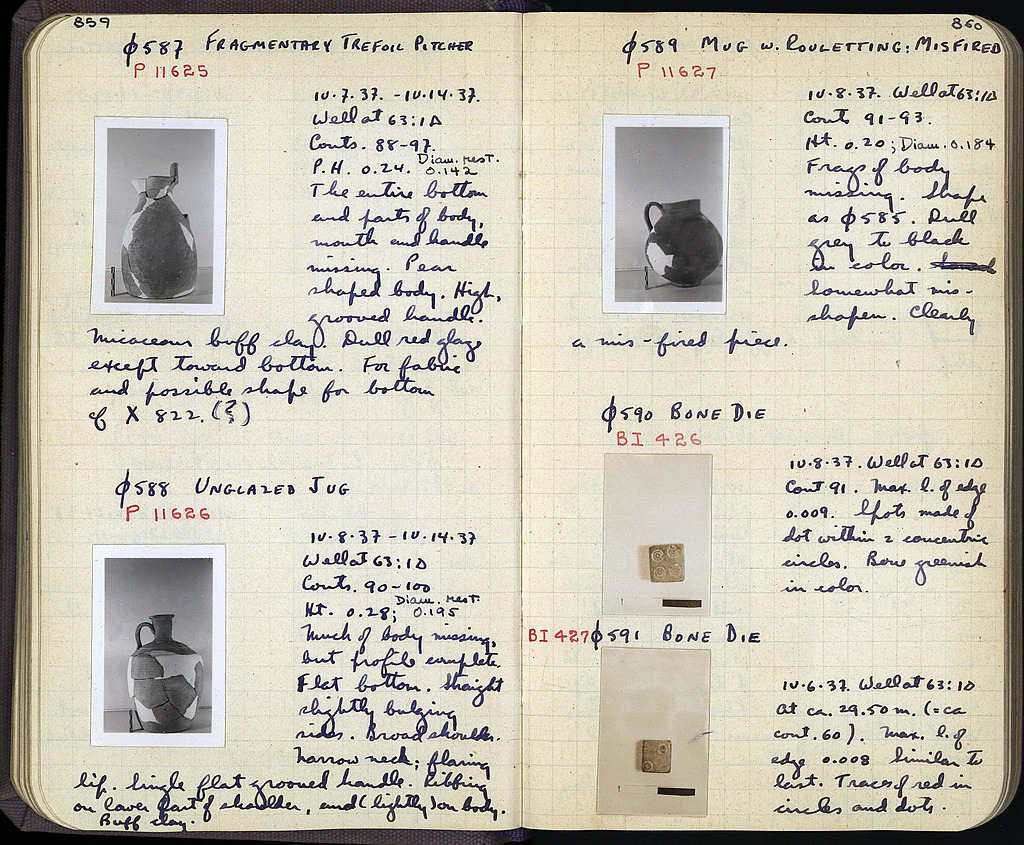 859
ɸ587 FRAGMENTARY TREFOIL PITCHER
P 11625
IV.7.37. - IV.14.37.
Well at 63:1Δ
Conts. 88-97.
P.H. 0.24. Diam. rest. 0.142
The entire bottom
and parts of body,
mouth and handle
missing. Pear
shaped body. High,
grooved handle.
Micaceous buff clay. Dull red glaze
except toward bottom. For fabric
and possible shape for bottom
cf X 822. (?)
ɸ588 UNGLAZED JUG
P 11626
IV.8.37 - IV.14.37
Well at 63:1Δ
Conts. 90-100
Ht. 0.28; Diam. rest. 0.195
Much of body missing,
but profile complete.
Flat bottom. Straight
slightly bulging
sides. Broad shoulder.
Narrow neck; flaring
lip. Single flat grooved handle. Ribbing
on lower part of shoulder, and (lightly) on body.
Buff clay.
860
ɸ589 MUG W. ROULETTING: MISFIRED
P 11627
IV.8.37. Well at 63:1Δ
Conts 91-93.
Ht. 0.20; Diam. 0.184
Frags of body
missing. Shape
as ɸ585. Dull
grey to black
in color.
Somewhat mis-
shapen. Clearly
a mis-fired piece.
ɸ590 BONE DIE
BI 426
IV.8.37. Well at 63:1Δ
Cont 91. Max. l. of edge
0.009. Spots made of
dot within 2 concentric
circles. Bone greenish
in color.
BI 427 ɸ591 BONE DIE
IV.6.37. Well at 63:1Δ
At ca. 29.50 m. (= ca
cont. 60). Max. l. of
edge 0.008 Similar to
last. Traces of red in
circles and dots.